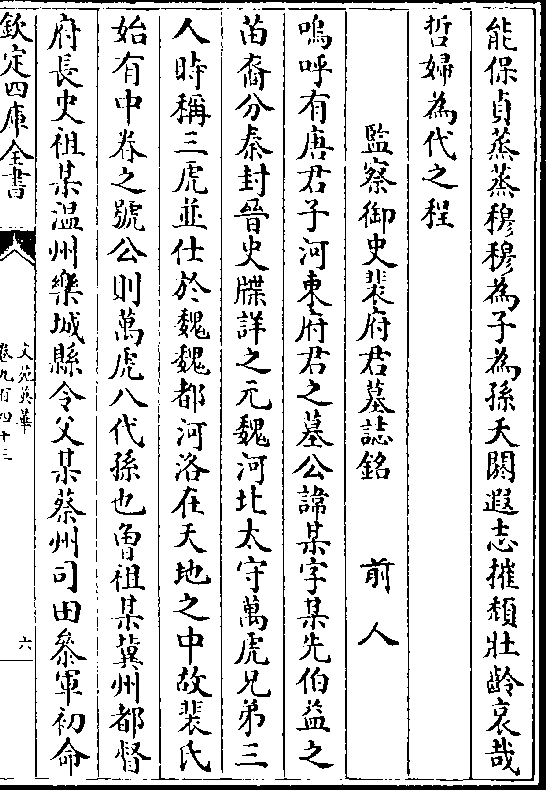 能保貞蒸蒸穆穆為子為孫天閼遐志摧頽壯齡哀哉
哲婦為代之程
監察御史裴府君墓誌銘 前人
嗚呼有唐君子河東府君之墓公諱某字某先伯益之
苗裔分秦封晉史牒詳之元魏河北太守萬虎兄弟三
人時稱三虎並仕於魏魏都河洛在天地之中故裴氏
始有中眷之號公則萬虎八代孫也曾祖某冀州都督
府長史祖某温州樂城縣令父某蔡州司田叅軍初命
欽定四庫全書
文苑英華
卷九百四十三
六